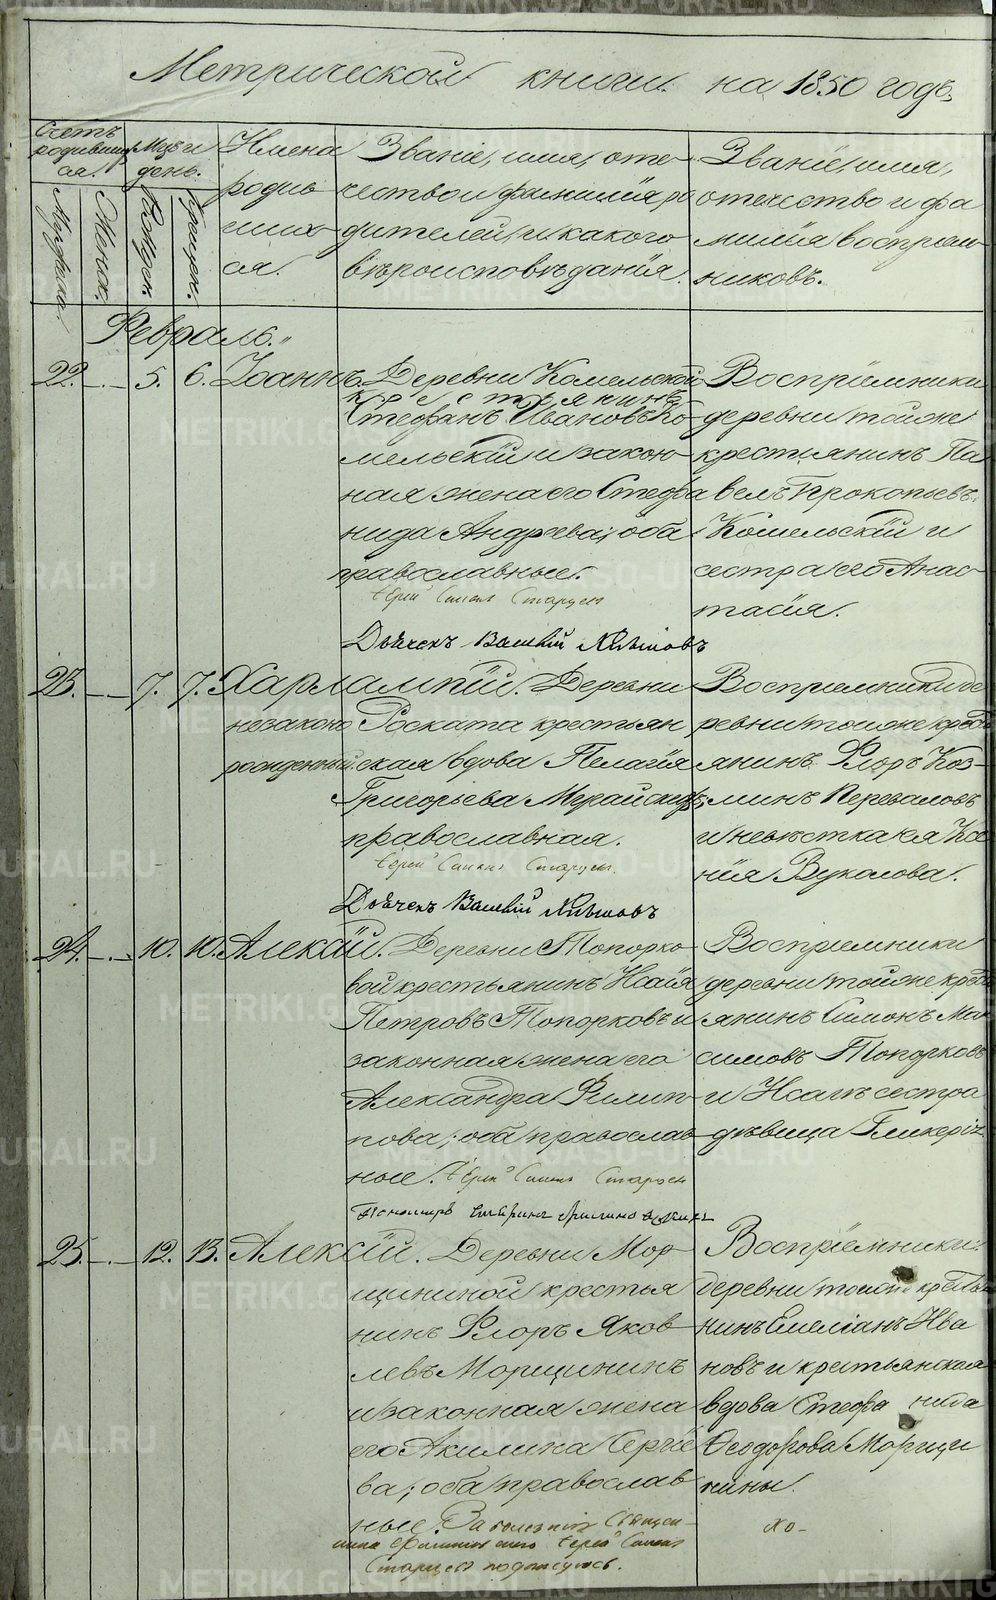 Метрической книги на 1850 годъ,
Счетъ родившихся.
Мужеска
Женск.
Мцъ и день.
Рожден.
Крещен.
Имена
родив
шихъ
ся.
Званіе, имя, оте-
чество и фамилія ро
дителей, и какого
вѣроисповѣданія.
Званіе, имя,
отечество и фа
милія воспріем-
никовъ.
Февраль.
22. — 5. 6. Іоаннъ.
Деревни Комельской
крестьянинъ
Стефанъ Ивановъ Ко-
мельскій и закон-
ная жена его Стефа
нида Андреева; оба
православные.
Іерей Симеон Старцев
Дьячекъ Василій
Воспріемники
деревни тойже
крестьянинъ Па
велъ Прокопьевъ
Комельскій и
сестра его Анас-
тасія.
23. — 7. 7. Харлампій.
незаконо
рожденный
Деревни
Роската крестьян
ская вдова Пелагія
Григорьева
православная.
Іерей Симеон Старцев
Дьячекъ Василій
Воспріемники де
ревни тойже кресть
янинъ Флоръ Коз-
минъ Переваловъ
и невѣстка ея Ксе
нія Вуколова.
24. — 10. 10. Алексій.
Деревни Топорко
вой крестьянинъ Исаія
Петровъ Топорковъ и
законная жена его
Александра Филип-
пова; оба православ
ные. Іерей Симеон Старцев
Пономарь
Воспріемники
деревни тойже кресть
янинъ Симонъ Мак
симовъ Топорковъ
и Исаіи сестра
дѣвица Гликерія
25. — 12. 13. Алексій.
Деревни Мор-
щининой крестья
нинъ Флоръ Яков
левъ Морщининъ
и законная жена
его Акилина Сергіе
ва; оба православ
ные. За болезнію Священ-
ника Іерей Симеон
Старцев подписуюсь.
Воспріемники:
деревни тойже крестья
нинъ Емеліанъ Ива
новъ и крестьянская
вдова Стефанида
Ѳеодорова Морщи
нины.
METRIKI.GASO-URAL.RU